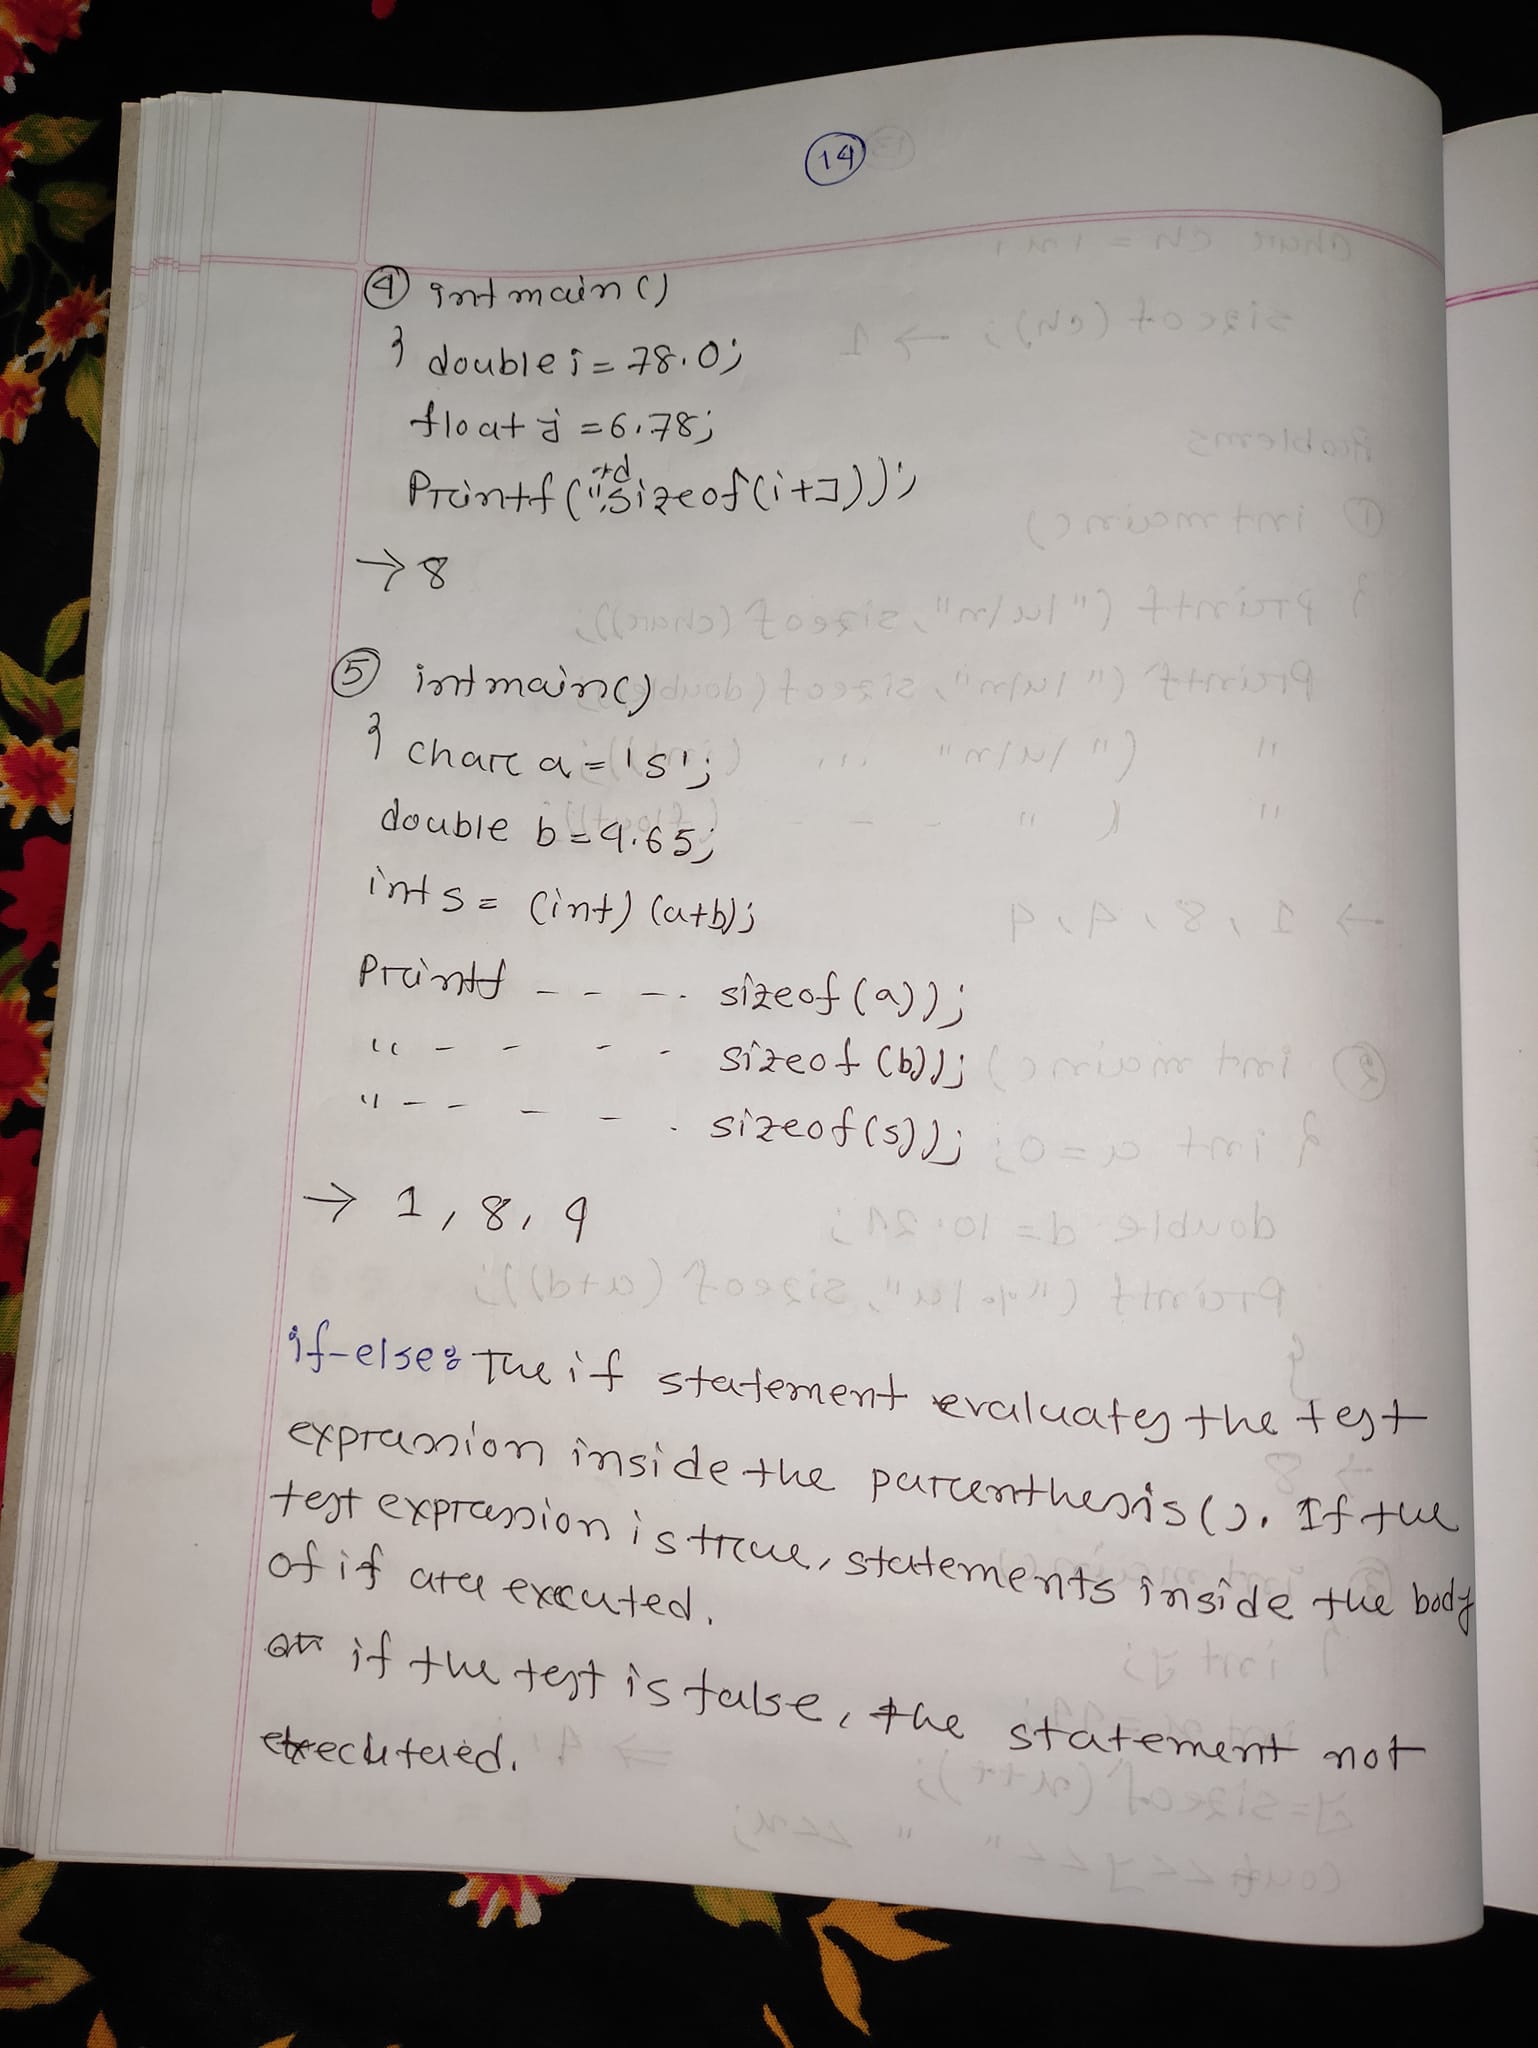 14
④ int main()
{ double i = 78.0;
float j = 6.78;
Printf("%d sizeof(i+J));
→ 8
⑤ int main()
{ char a = 's';
double b = 4.65;
int s = (int) (a+b);
Printf - - - - sizeof(a));
" - - - - sizeof(b));
" - - - - - sizeof(s));
→ 1, 8, 4
if-else: The if statement evaluates the test
expression inside the parenthesis (). If the
test expression is true, statements inside the body
of if are executed.
if the test is false, the statement not